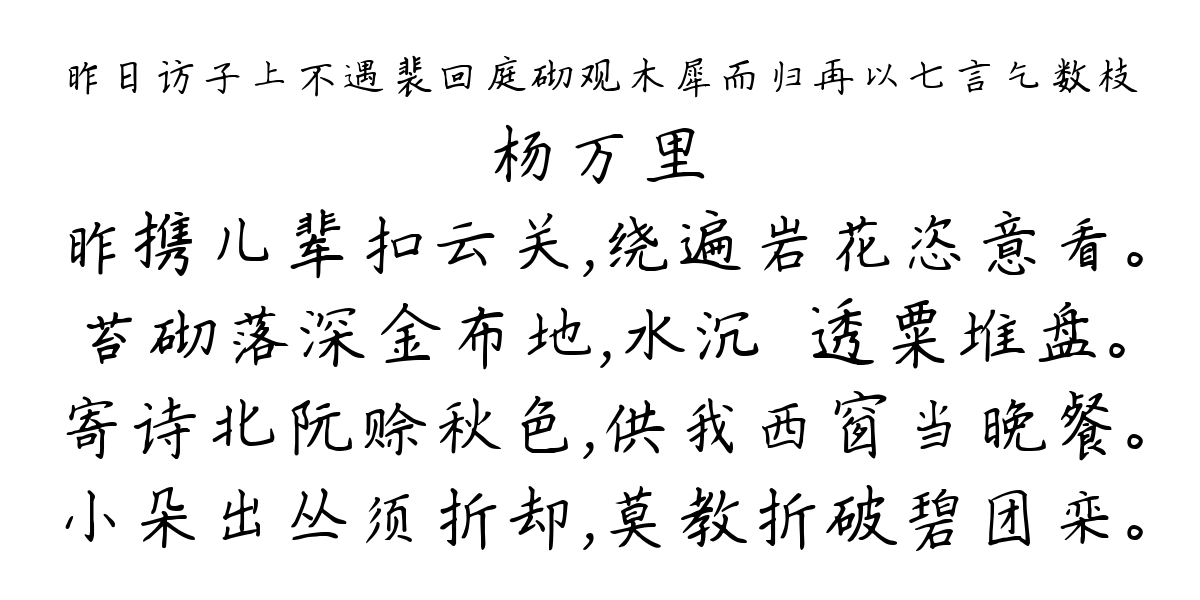 昨日访子上不遇裴回庭砌观木犀而归再以七言乞数枝
杨万里
昨携儿辈扣云关,绕遍岩花恣意看。
苔砌落深金布地,水沉 透粟堆盘。
寄诗北阮赊秋色,供我西窗当晚餐。
小朵出丛须折却,莫教折破碧团栾。